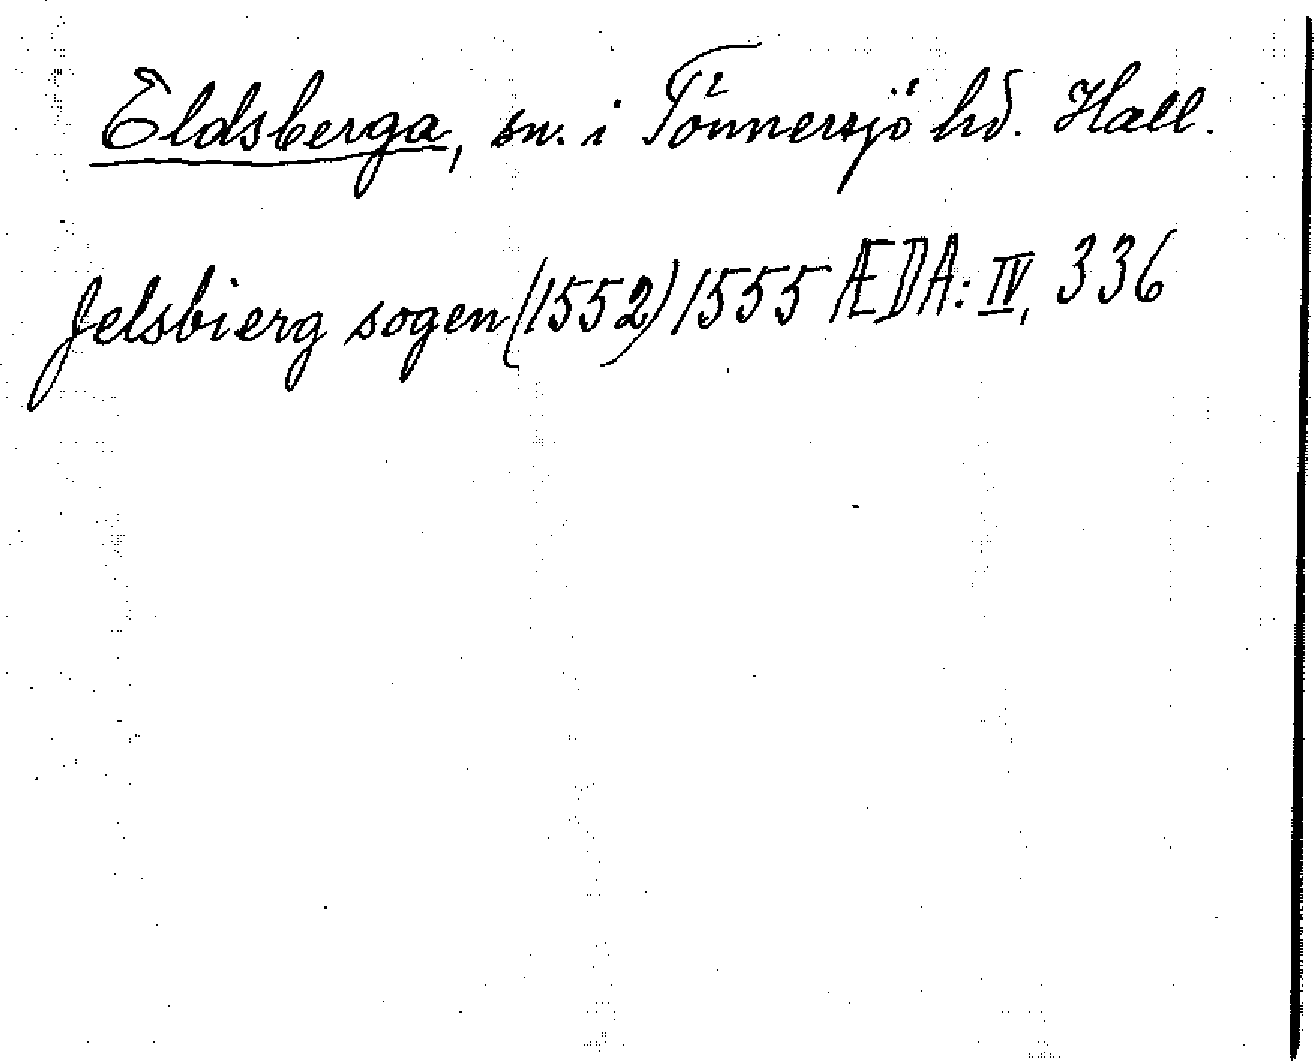 Eldsberga, sn. i Tönnersjö hd. Hall.
Jelsbierg sogen (1552) 1555 ÆDA: IV, 336